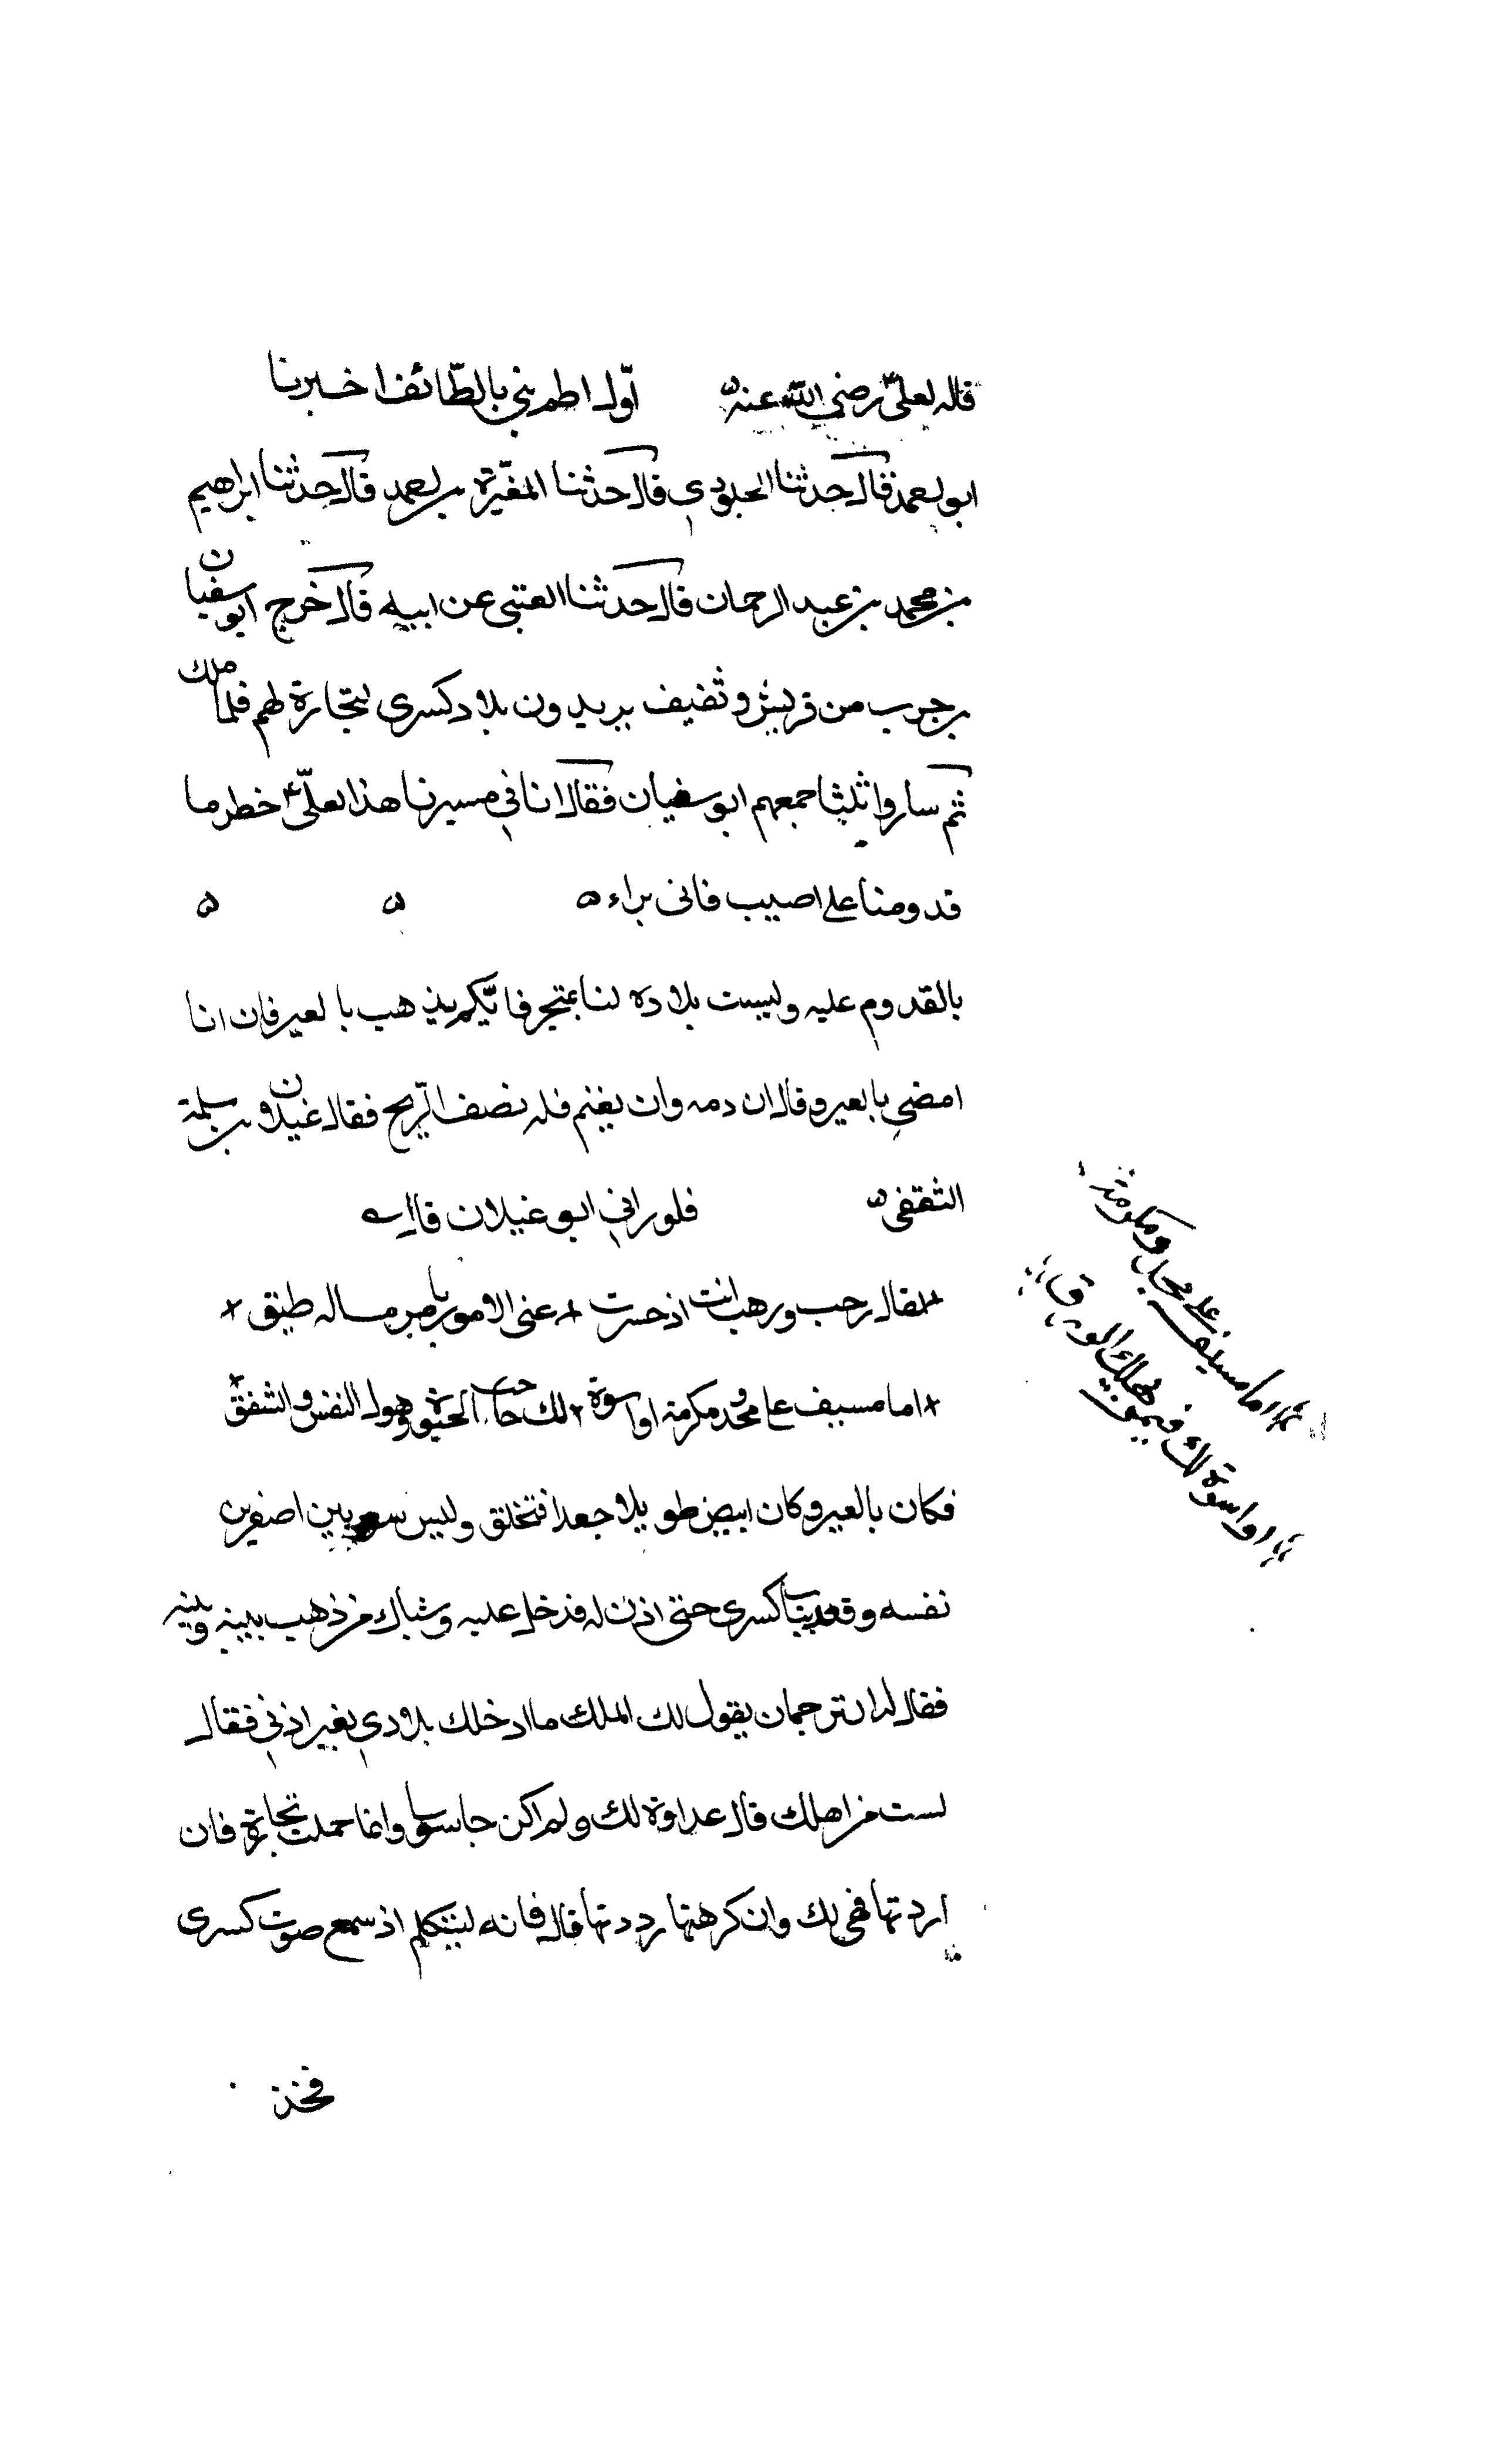 قاله لعلي رضي الله عنه اول اطم بني بالطائف اخبرنا
ابو احمد قال حدثنا الجلودى قال حدثنا المغيرة بن محمد قال حدثنا ابراهيم
بن محمد بن عبد الرحمان قال حدثنا العتبى عن ابيه قال خرج ابو سفيان
بن حرب من قريش وثقيف يريدون بلاد كسرى لتجارة لهم فلما
ثم ساروا ثلثا جمعهم ابو سفيان فقال انا في مسيرنا هذا لعلى خطر ما
قدومنا على اصيب فانى براء
بالقدوم عليه وليست بلاده لنا بمتجر فايكم يذهب بالعير فان انا
امضي بالعير وقال ان دمه وان يغنم فله نصف الربح فقال غيلان بن سلمة
الثقفى فلو راني ابو غيلان
لقال رحب ورهب انت اذ حسرت عنى الامور
اما مسيف على مجد ومكرمة او اسوة لك
فكان بالعير وكان ابيض طويلا جعدا فتخلق وليس اصفرين
نفسه وقعد بباب كسرى حتى اذن له فدخل عليه وشباك من ذهب بينه وبينه
فقال له الترجمان يقول لك الملك ما ادخلك بلادي بغير اذني فقال
لست من اهلك قال عداوة لك ولم اكن جاسوسا وانما حملت تجارة فان
اردتها فهى لك وان كرهتها رددتها قال فانه ليتكلم اذ سمع صوت كسرى
فخذ
اما مسيف على مجد ومكرمة
او اسوة لك فيمن يهلك